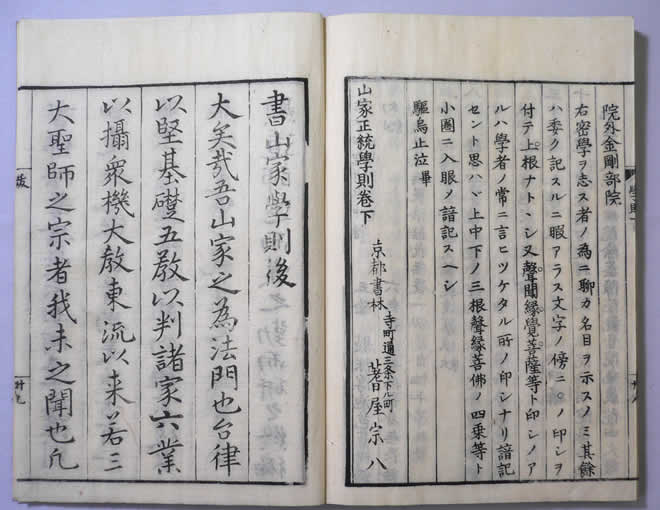 院外金剛部院
右密學ヲ志ス者ノ為ニ聊カ名目ヲ示スノミ其餘
ハ委ク記スルニ暇アラス文字ノ傍ニ○ノ印シヲ
付テ上根ナトヽシ又聲聞緣覺菩薩等ト印シノア
ルハ學者ノ常ニ言ヒツケタル所ノ印シナリ諳記
セント思ハヾ上中下ノ三根聲緣菩佛ノ四乘等ト
小圈ニ入眼〆諳記スヘシ
驅烏止泣畢
山家正統學則卷下
京都書林
寺町通三条下ル町
蓍屋宗八
書山家學則後
大矣哉吾山家之為法門也台律
以堅基礎五教以判諸家六業
以攝衆機大教東流以來若三
大聖師之宗者我未之聞也凡
跋
廿九